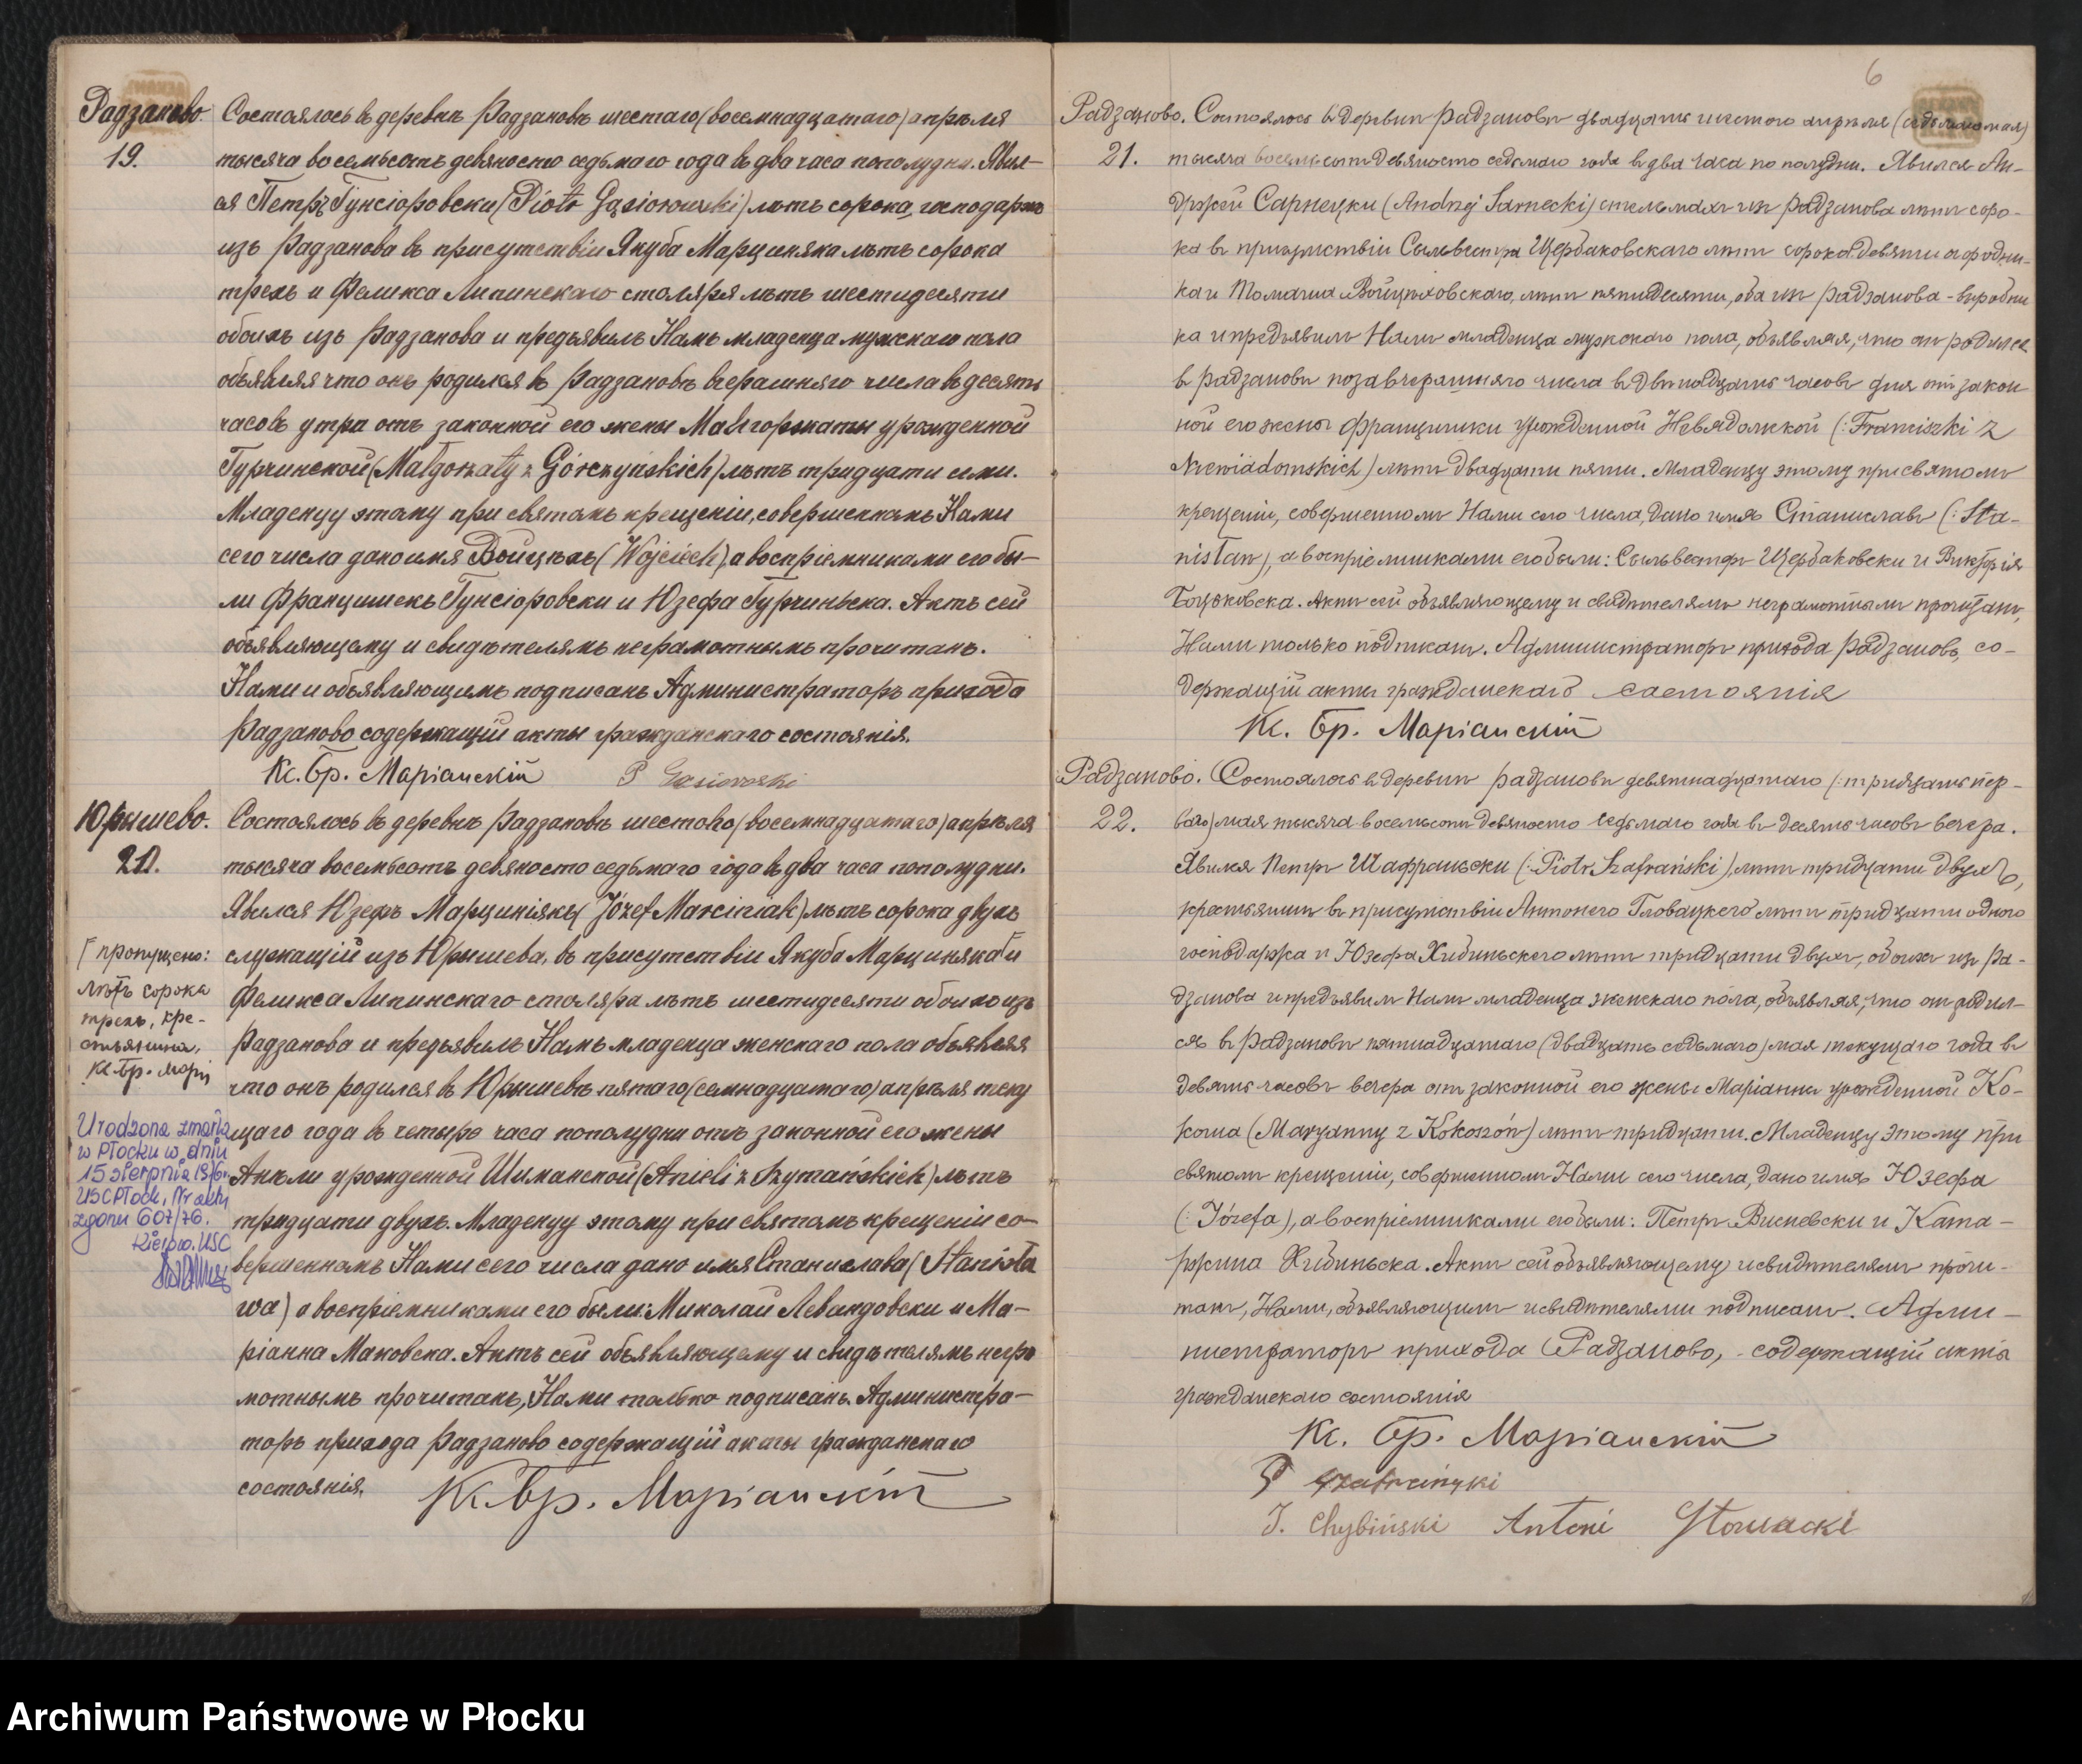 Радзаново.
19.
Состоялось въ деревнѣ Радзановѣ шестаго (восемнадцатаго) апрѣля
тысяча восемьсотъ девяносто седьмаго года въ два часа пополудни. Явил-
ся Петръ Гунсіоровски (Piotr Gąsiorowski) лѣтъ сорока, господаржъ
изъ Радзанова въ присутствіи Якуба Марциняка лѣтъ сорока
трехъ и Феликса Липинскаго столяра лѣтъ шестидесяти
обоихъ изъ Радзанова и предъявилъ Намъ младенца мужскаго пола
объявляя что онъ родился въ Радзановѣ вчерашняго числа въ десять
часовъ утра отъ законной его жены Малгоржаты урожденной
Гурчинской (Małgorzaty z Górczyńskich) лѣтъ тридцати семи.
Младенцу этому при святомъ крещеніи, совершенномъ Нами
сего числа дано имя Войцѣхъ (Wojciech), а воспріемниками его бы-
ли Францишекъ Гунсіоровски и Юзефа Гурчиньска. Актъ сей
объявляющему и свидѣтелямъ неграмотнымъ прочитанъ.
Нами и объявляющимъ подписанъ Администраторъ прихода
Радзаново содержащій акты гражданскаго состоянія.
Кс. Бр. Маріанскій P Gąsiorowski
Юрышево.
20.
Состоялось въ деревнѣ Радзановѣ шестого (восемнадцатаго) апрѣля
тысяча восемьсотъ девяносто седьмаго года въ два часа пополудни.
Явился Юзефъ Марцинякъ (Józef Marciniak) лѣтъ сорока двухъ
служащій изъ Юрышева, въ присутствіи Якуба Марциняка Г и
Феликса Липинскаго столяра лѣтъ шестидесяти обоихъ изъ
Радзанова и предъявилъ Намъ младенца женскаго пола объявляя
что онъ родился въ Юрышевѣ пятаго (семнадцатаго) апрѣля теку
щаго года въ четыре часа пополудни отъ законной его жены
Анѣли урожденной Шиманской (Anieli z Szymańskich) лѣтъ
тридцати двухъ. Младенцу этому при святомъ крещеніи со-
вершенномъ Нами сего числа дано имя Станислава (Stanisła
wa) а воспріемниками его были: Миколай Левандовски и Ма-
ріанна Маковска. Актъ сей объявляющему и свидѣтелямъ негра
мотнымъ прочитанъ, Нами только подписанъ. Администра-
торъ прихода Радзаново содержащій акты гражданскаго
состоянія. Кс. Бр. Маріанскій
Г пропущено:
лѣтъ сорока
трехъ, кре-
стьянина,
Кс. Бр. Марі
Urodzona zmarła
w Płocku w dniu
15 sierpnia 1976r.
USC Płock, Nr aktu
zgonu 607/76.
Kierow. USC
6
Радзаново.
21.
Состоялось въ деревни Радзановѣ двадцать шестого апрѣля (седьмаго мая)
тысяча восемьсотъ девяносто седьмаго года въ два часа по полудни. Явился Ан-
држей Сарнецки (Andrzej Sarnecki) стельмахъ изъ Радзанова лѣтъ соро-
ка въ присутствіи Сыльвестра Щербаковскаго лѣтъ сорока девяти огродни-
ка и Томаша Войцѣховскаго, лѣтъ пятидесяти, оба изъ Радзанова - выробни
ка и предъявилъ Намъ младенца мужскаго пола, объявляя, что онъ родился
въ Радзановѣ позавчерашняго числа въ двѣнадцать часовъ дня отъ закон
ной его жены Францишки урожденной Невядомской (:Franciszki z
Niewiadomskich) лѣтъ двадцати пяти. Младенцу этому при святомъ
крещеніи, совершенномъ Нами сего числа, дано имя Станиславъ (:Sta-
nisław), а воспріемниками его были: Сыльвестръ Щербаковски и Викторія
Боцяковска. Актъ сей объявляющему и свидѣтелямъ неграмотнымъ прочитанъ,
Нами только подписанъ. Администраторъ прихода Радзановъ, со-
держащій акты гражданскаго состоянія
Кс. Бр. Маріанскій
Радзаново.
22.
Состоялось въ деревни Радзановѣ девятнадцатаго (:тридцать пер-
ваго) мая тысяча восемьсотъ девяносто седьмаго года въ десять часовъ вечера.
Явился Петръ Шафраньски (:Piotr Szafrański), лѣтъ тридцати двухъ,
крестьянинъ въ присутствіи Антонего Гловацкего лѣтъ тридцати одного
господаржа и Юзефа Хибиньскего лѣтъ тридцати двухъ, обоихъ изъ Ра-
дзанова и предъявилъ Намъ младенца женскаго пола, объявляя, что онъ родил-
ся въ Радзановѣ пятнадцатаго (двадцать седьмаго) мая текущаго года въ
девять часовъ вечера отъ законной его жены Маріанны урожденной Ко-
кошка (Maryanny z Kokoszów) лѣтъ тридцати. Младенцу этому при
святомъ крещеніи, совершенномъ Нами сего числа, дано имя Юзефа
(:Józefa), а воспріемниками его были: Петръ Висневски и Ката-
ржина Хибиньска. Актъ сей объявляющему и свидѣтелямъ прочи-
танъ, Нами, объявляющимъ и свидѣтелями подписанъ. Адми-
нистраторъ прихода Радзаново, - содержащій акты
гражданскаго состоянія
Кс. Бр. Маріанскій
P Szafrański
J. Chybiński Antoni Głowacki
Archiwum Państwowe w Płocku